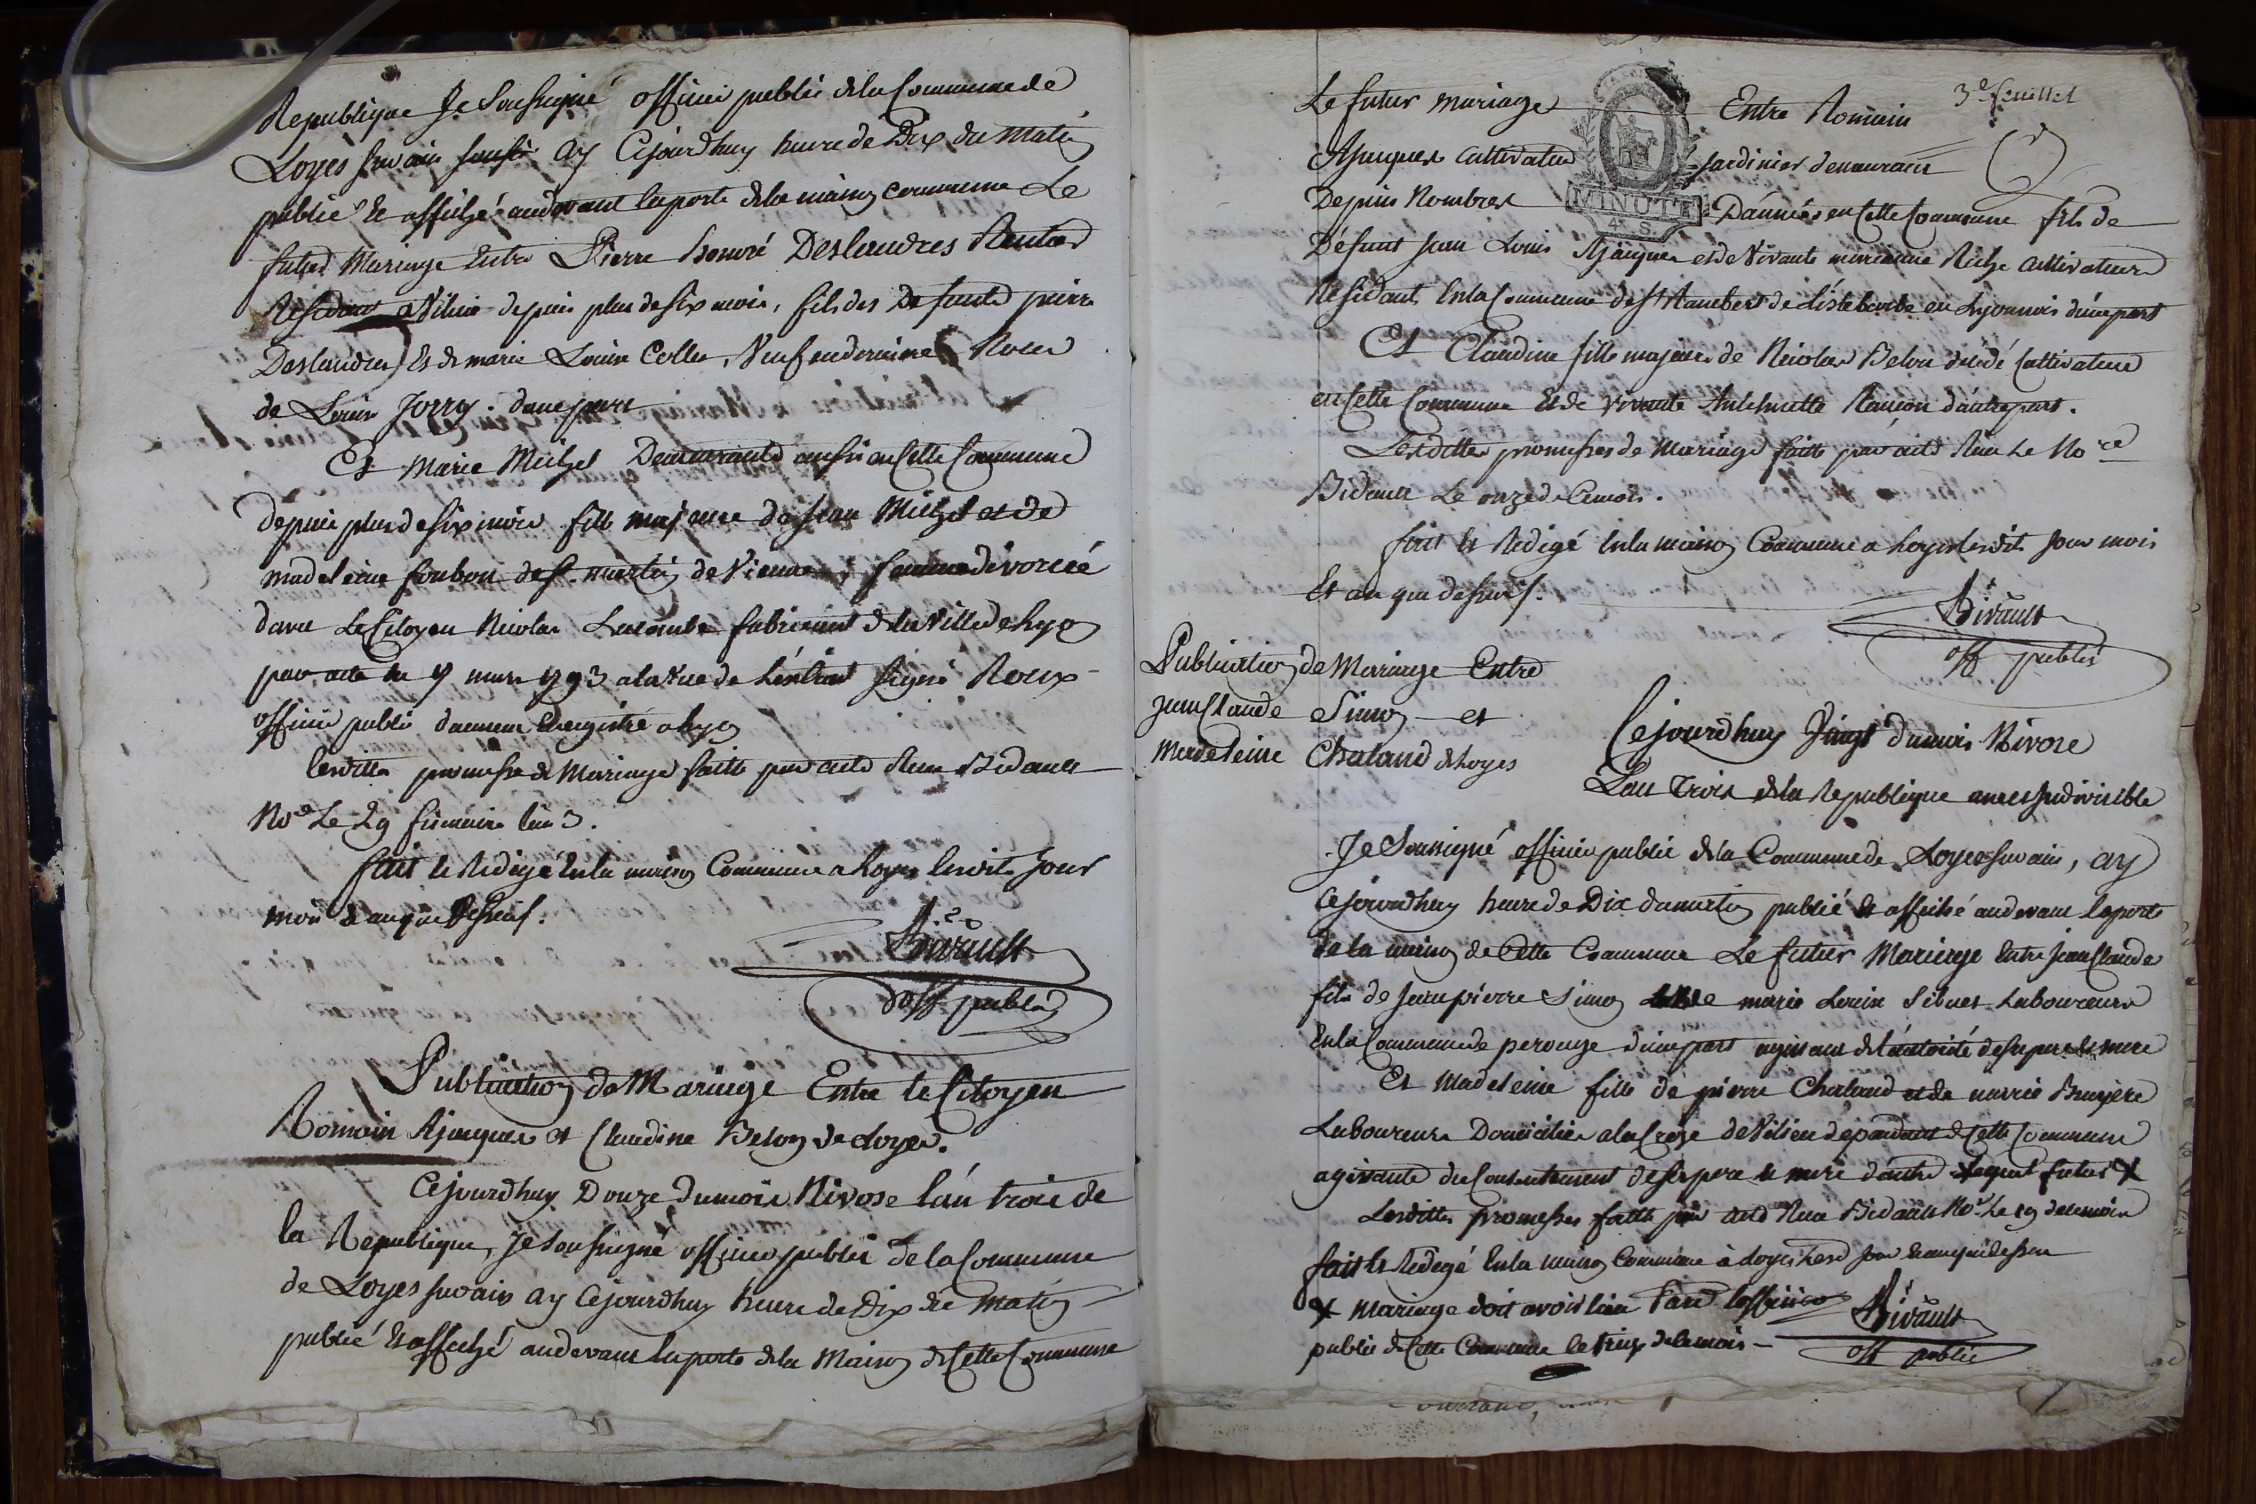 Republique Je Soussigné officier public de la Commune de
Loyes sur ain ay Cejourdhuy heure de Dix du Matin
publié et affiché audevant la porte de la maison commune Le
futur Mariage Entre Pierre honoré Deslandres Rentier
Résidant a Vilieu depuis plus de six mois, fils des Defunts pierre
Deslandres et de marie Louise Collet, Veuf en derniere Noces
de Louise Jorry. d'une part
Et Marie Michel Demeurante aussi en Cette Commune
depuis plus de six mois fille majeure de Jean Michel et de
madeleine foubon de St. martin de Vienne, femme divorcée
davec Le Citoyen Nicolas Lacombe fabricant de la Ville de Lyon
par acte du 7 mars 1793 signé Roux
officier public duement Enregistré a Lyon
lesdittes promesse de Mariage faitte par acte Reçu Bidault
Nore Le 29 frimaire l'an 3.
fait et Redigé En la maison Commune a Loyes lesdits Jour
mois et an que Dessus.
Bivault
off public
Publication de Mariage Entre le Citoyen
Romain Ajacques et Claudine Belon de Loyes.
Cejourdhuy Douze du mois Nivose l'an trois de
la Republique, Je Soussigné officier public de la Commune
de Loyes sur ain ay Cejourdhuy heure de Dix du Matin
publié et affiché audevant la porte de la Maison de Cette Commune
3e feuillet
Le futur mariage Entre Romain
Ajacques cultivateur jardinier demeurant
Depuis Nombres D'années en Cette Commune fils de
Défunt Jean Louis Ajacques et de Vivante marianne Riche cultivateurs
Résidants En la Commune de St Rambert de L'isle barbe en Lyonnois d'une part
Et Claudine fille majeure de Nicolas Belon décédé Cultivateur
en Cette Commune Et de vivante Anthelmette Rancon d'autre part.
Lesdittes promesses de Mariage faitte par acte Reçu Le Nore
Bidault Le onze de Cemois.
fait et Redigé En la maison Commune a Loyes lesdits Jour mois
Et an que dessus.
Bivault
off public
MINUTE
4 S.
Publication de Mariage Entre
Jean Claude Simon et
Madeleine Chaland de Loyes
Cejourdhuy Vingt du mois Nivose
L'an Trois de la Republique une et Indivisible
Je Soussigné officier public de la Commune de Loyes sur ain, ay
Cejourdhuy heure de Dix du matin publié et affiché audevant la porte
de la maison de Cette Commune Le futur Mariage Entre Jean Claude
fils de Jean pierre Simon marie Louise Laboureurs
En la Commune de perouge d'une part agissant de l'autorité de ses pere et mere
Et Madeleine fille de pierre Chaland et de marie Bruyere
Laboureurs Domiciliés a la Croze de Vilieu dépendant de Cette Commune
agissante du Consentement de ses pere et mere d'autre Lequel futur X
Lesdittes promesses faitte par acte Reçu Bidault Nore Le 19 de cemois
fait et Redigé En la maison Commune à Loyes Jour et an que dessus
X Mariage doit avoir lieu l'officier
public de Cette Commune le trize de ce mois
Bivault
off public